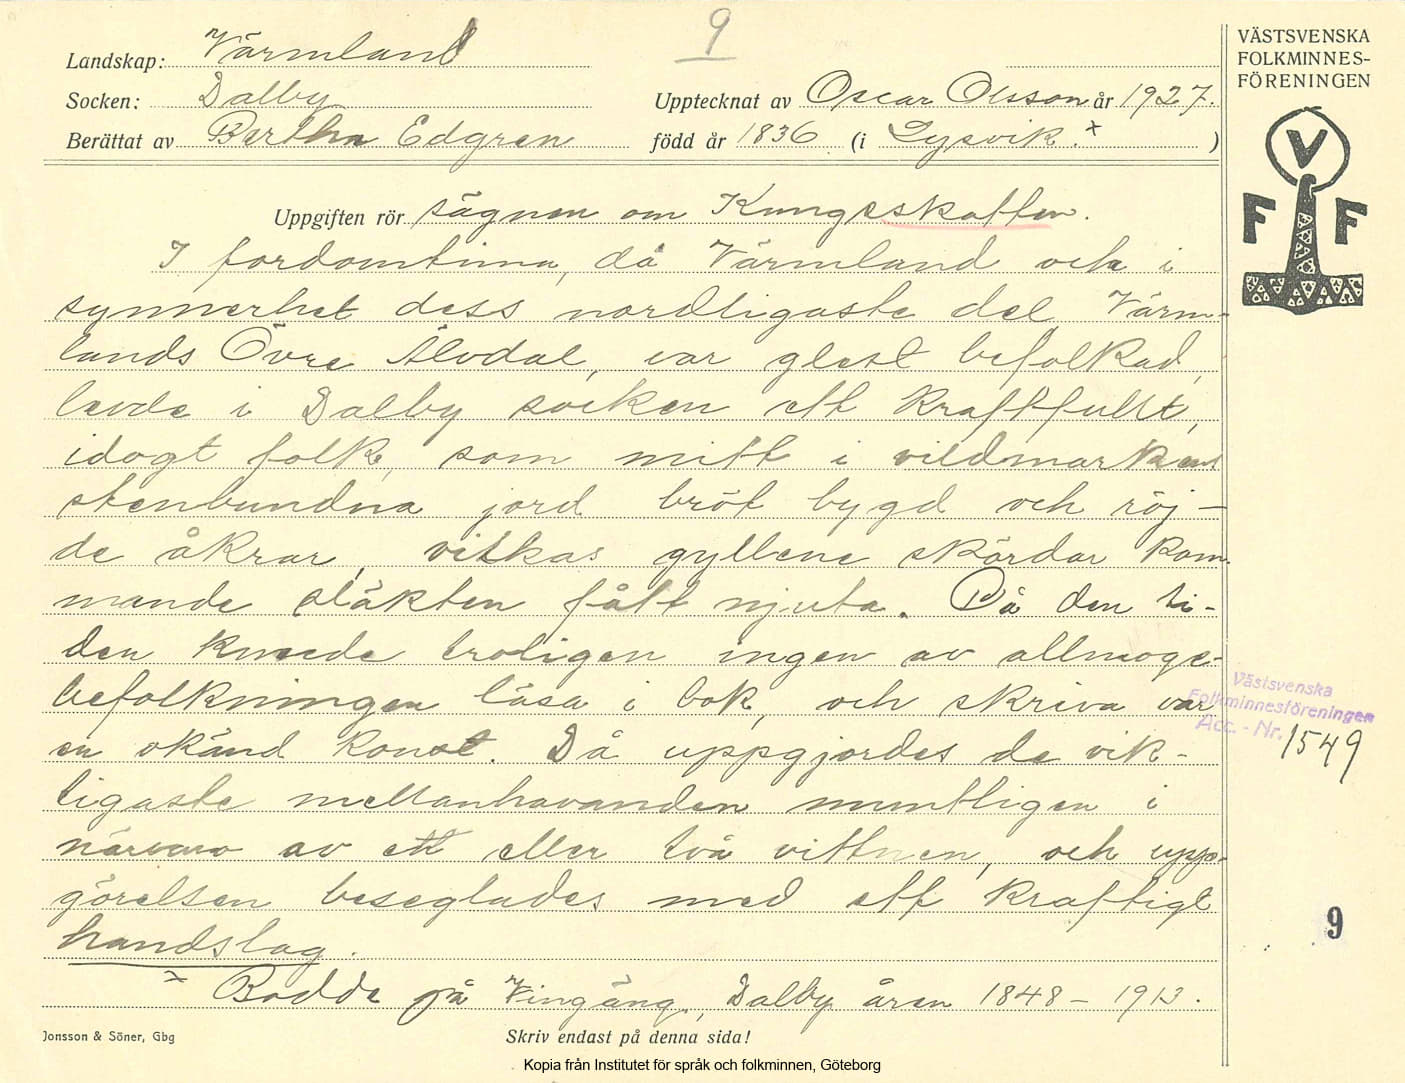 9
Landskap: Värmland
Socken: Dalby
Upptecknat av Oscar Olsson år 1927.
Berättat av Bertha Edgren född år 1836 (i Lysvik.x )
VÄSTSVENSKA
FOLKMINNES-
FÖRENINGEN
V
F F
Uppgiften rör sägnen om Kungsskatten.
I fordomtima, då Värmland och i
synnerhet dess nordligaste del Värm-
lands Övre Älvdal, var glest befolkad,
levde i Dalby socken ett kraftfullt,
idogt folk, som mitt i vildmarkens
stenbundna jord bröt bygd och röj-
de åkrar, vilkas gyllene skördar kom-
mande släkten fått njuta. På den ti-
den kunde troligen ingen av allmoge-
befolkningen läsa i bok, och skriva var
en okänd konst. Då uppgjordes de vik-
tigaste mellanhavanden muntligen i
närvaro av ett eller två vittnen, och upp-
görelsen beseglades med ett kraftigt
handslag.
x Bodde på Vingäng, Dalby åren 1848 – 1913.
Västsvenska
Folkminnesföreningen
Acc. - Nr. 1549
9
Jonsson & Söner, Gbg
Skriv endast på denna sida!
Kopia från Institutet för språk och folkminnen, Göteborg